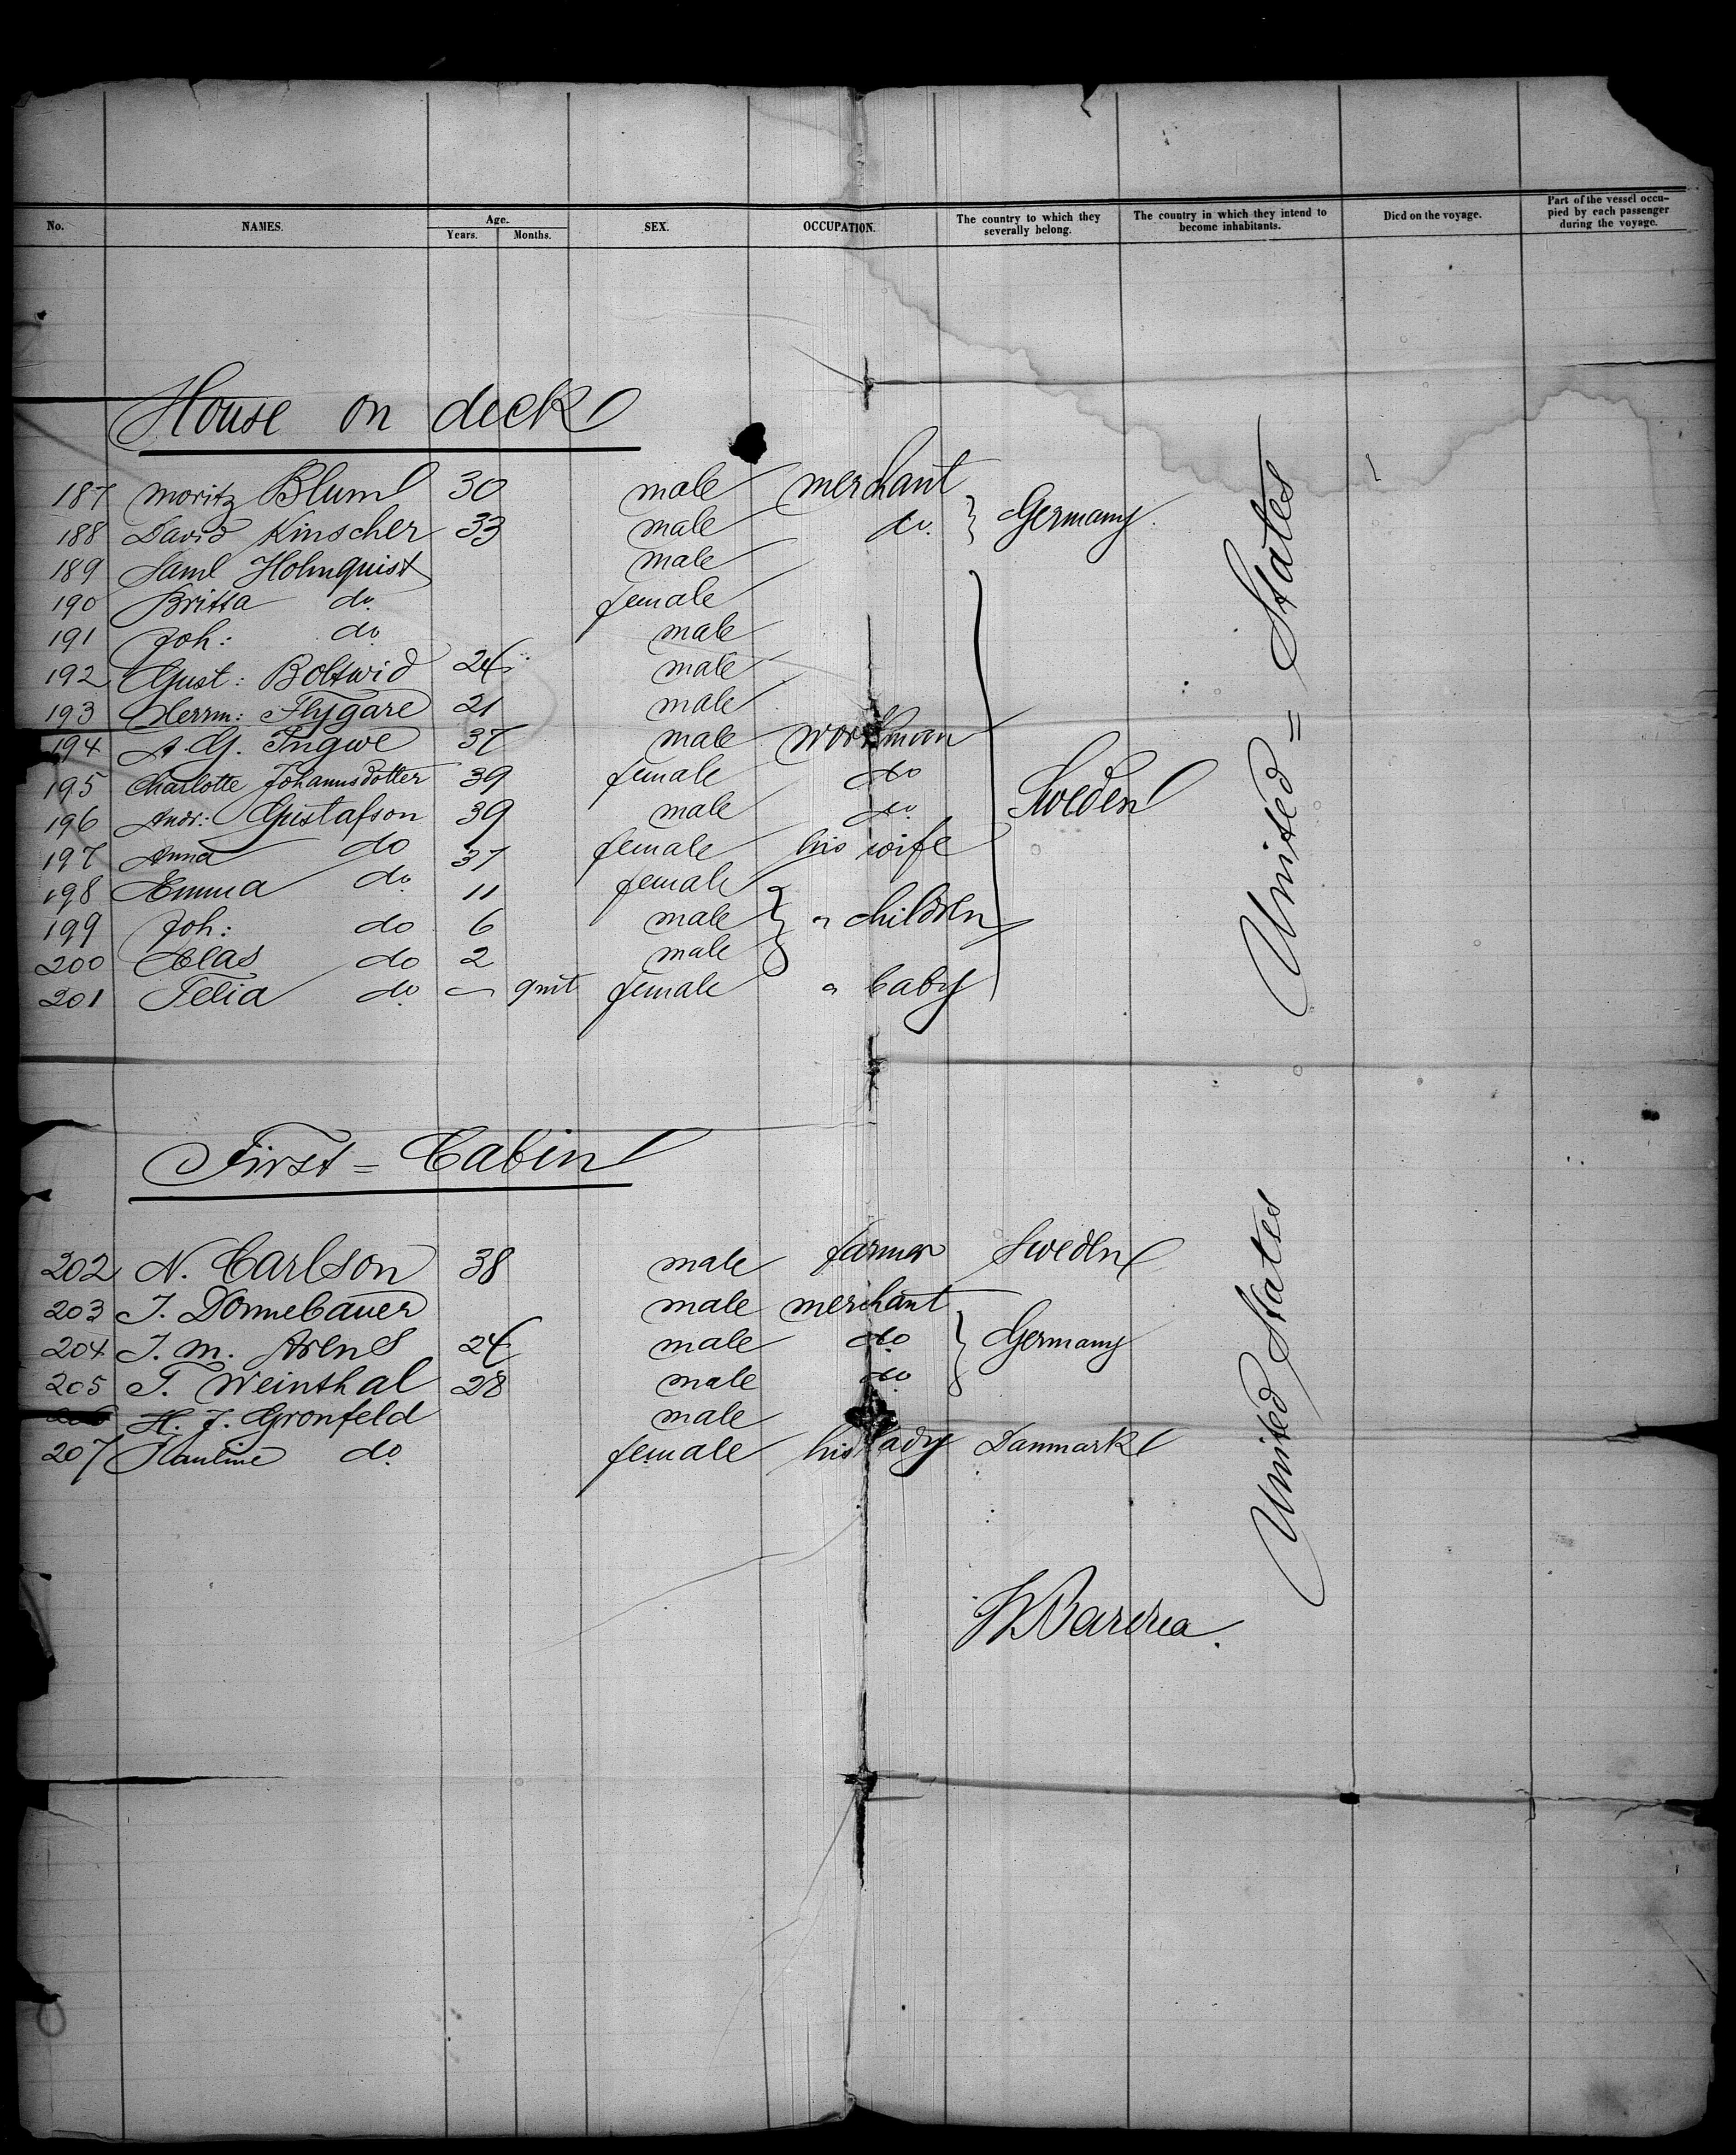 No. NAMES. Age. Years. Months. SEX. OCCUPATION. The country to which they severally belong. The country in which they intend to become inhabitants. Died on the voyage. Part of the vessel occupied by each passenger during the voyage.
House on deck
187 Moritz Blum 30 male merchant
188 David Kinscher 33 male do. } Germany.
189 Saml Holmquist male
190 Britta do. female
191 Joh: do male
192 Gust: Boltwid 24 male
193 Herrm: Flygare 21 male
194 A. G. Ingwe 37 male workman
195 Charlotte Johannsdotter 39 female do
196 Andr: Gustafson 39 male do. Sweden
197 Anna do 37 female his wife
198 Emma do. 11 female
199 Joh: do 6 male } " children
200 Clas do 2 male
201 Felia do. — 9 mt female " baby
United = States
First = Cabin
202 N. Carlson 38 male farmer Sweden
203 J. Donnebauer male merchant
204 J. M. Arens 24 male do. } Germany
205 T. Weinthal 28 male do.
206 H. J. Gronfeld male
207 Pauline do. female his lady Danmark
United States